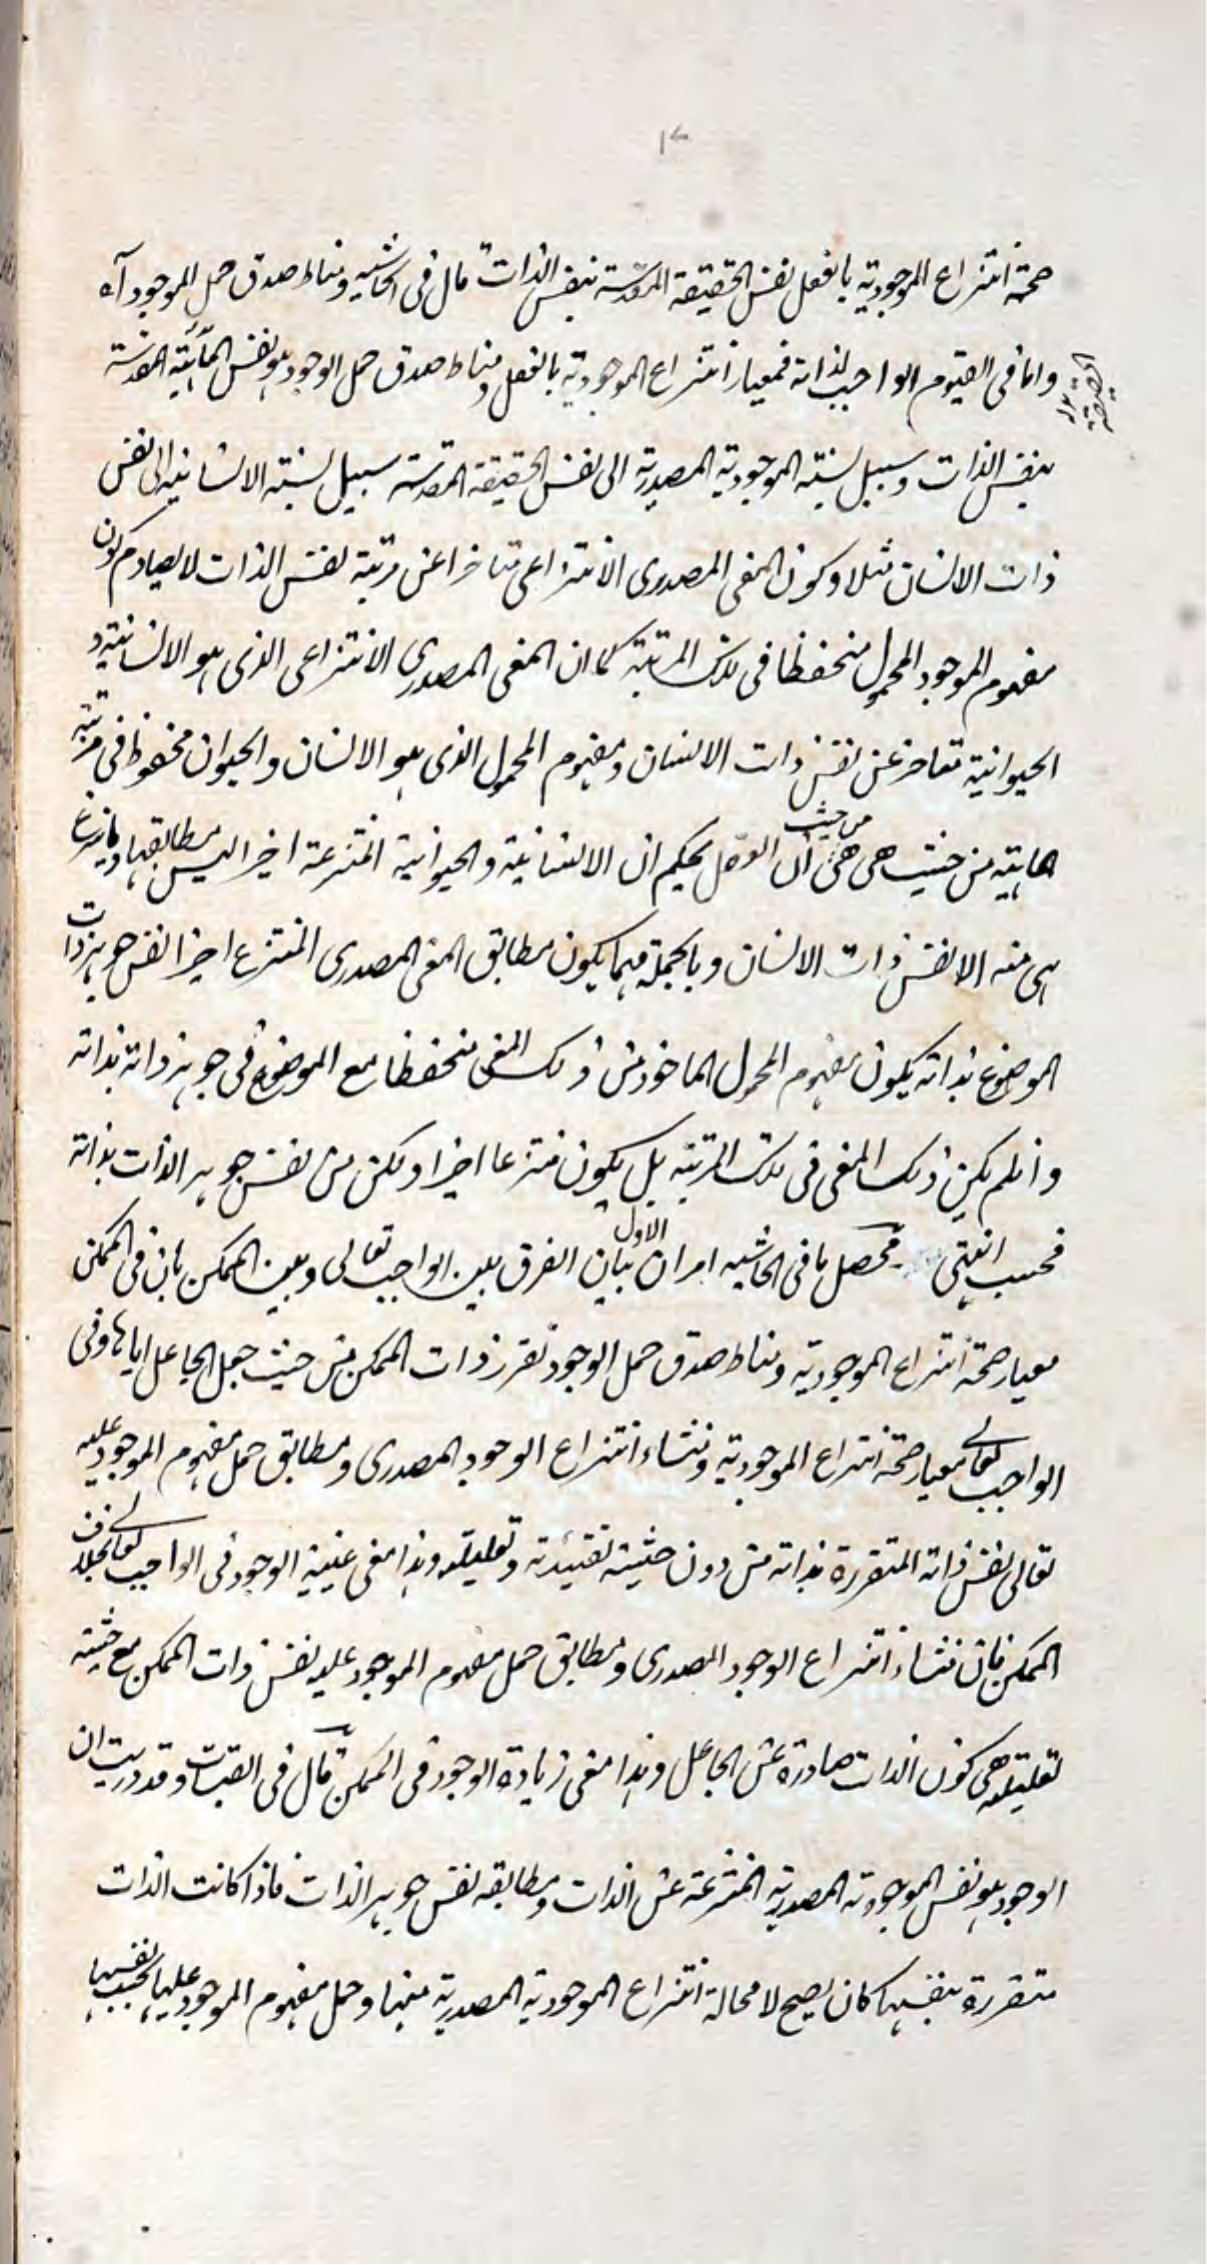 صحة انتزاع الموجودية بالفعل نفس الحقيقة المقدسة بنفس الذات قال فى الحاشيه ومناط صدق حمل الموجود آه
واما فى القيوم الواجب لذاته فمعيار انتزاع الموجودية بالفعل ومناط صدق حمل الوجود هو نفس المائية المقدسة
بنفس الذات وسبيل نسبته الموجودية المصدرية الى نفس الحقيقة المقدسة سبيل نسبته الانسانية الى نفس
ذات الانسان مثلا وكون المعنى المصدرى الانتزاعى متاخرا عن مرتبة نفس الذات لا يصادم كون
مفهوم الموجود المحمول منحفظا فى تلك المرتبة كما ان المعنى المصدرى الانتزاعى الذى هو الانسانية و
الحيوانية متاخر عن نفس ذات الانسان ومفهوم المحمول الذى هو الانسان والحيوان محفوظ فى مرتبة
ماهيته من حيث هى هى من حيث ان العقل يحكم ان الانسانية والحيوانية المنتزعة اخيرا ليس مطابقها وما ينتزع
هى منه الا نفس ذات الانسان وبالجملة مهما يكون مطابق المعنى المصدرى المنتزع اخيرا نفس جوهر ذات
الموضوع بذاته يكون مفهوم المحمول الماخوذ من ذلك المعنى منحفظا مع الموضوع فى جوهر ذاته بذاته
وان لم يكن ذلك المعنى فى تلك المرتبة بل يكون منتزعا اخيرا ولكن من نفس جوهر الذات بذاته
فحسب انتهى محصل ما فى الحاشيه امران الاول بيان الفرق بين الواجب تعالى وبين الممكن بان فى الممكن
معيار صحة انتزاع الموجودية ومناط صدق حمل الوجود تقرر ذات الممكن من حيث جعل الجاعل اياها وفى
الواجب تعالى معيار صحة انتزاع الموجودية ومنشاء انتزاع الوجود المصدرى ومطابق حمل مفهوم الموجود عليه
تعالى نفس ذاته المتقررة بذاته من دون حيثية تقييدية وتعليلية وهذا معنى عينية الوجود فى الواجب تعالى بخلاف
الممكن فان منشاء انتزاع الوجود المصدرى ومطابق حمل مفهوم الموجود عليه نفس ذات الممكن مع حيثية
تعليلية هى كون الذات صادرة عن الجاعل وهذا معنى زيادة الوجود فى الممكن قال فى القبسات وقد دريت ان
الوجود هو نفس الموجودية المصدرية المنتزعة عن الذات ومطابقه نفس جوهر الذات فاذا كانت الذات
متقررة بنفسها كان يصح لا محالة انتزاع الموجودية المصدرية منها وحمل مفهوم الموجود عليها بحسب نفسها